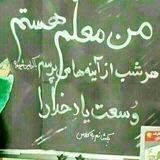 من معلم هستم
هر شب از آینه‌های پرسم
وسعت یاد خدا را